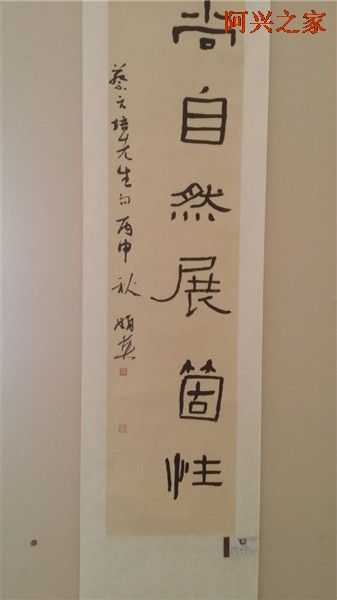 阿兴之家
尚自然展箇性
蔡元培先生句丙申秋